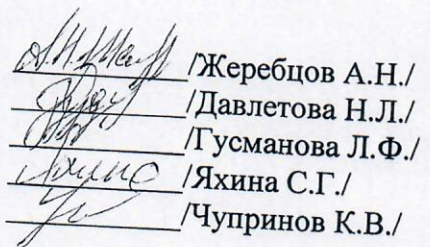 /Жеребцов А.Н./
/Давлетова Н.Л./
/Гусманова Л.Ф./
/Яхина С.Г./
/Чупринов К.В./